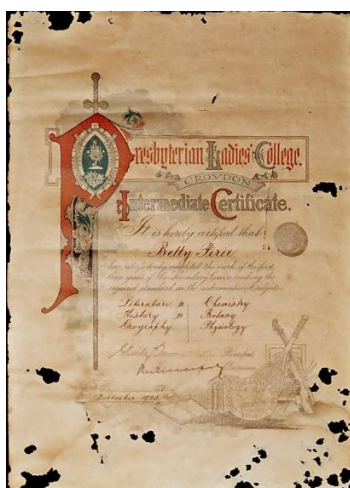 Presbyterian Ladies College.
CROYDON
Intermediate Certificate.
It is hereby certified that
Betty Pirie
has satisfactorily completed the work of the first
three years of the secondary course reaching the
required standard in the undermentioned subjects:
Literature Chemistry
History Botany
Geography Physiology
Principal
December